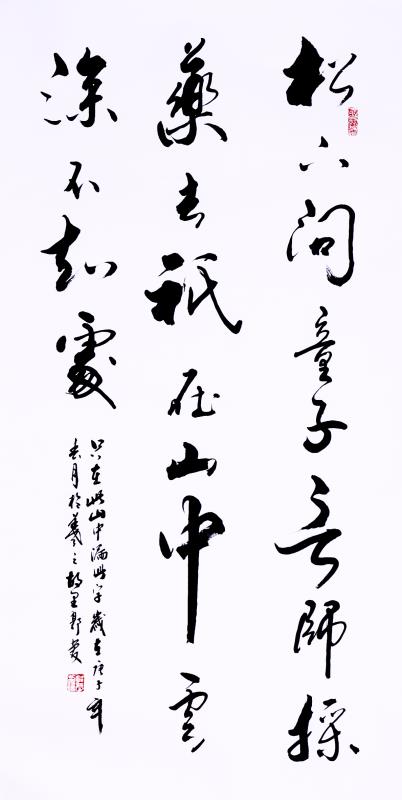 松下問童子言師採
藥去祇在山中雲
深不知處
只在此山中漏此字歲在庚子年
月於羲之故里郭